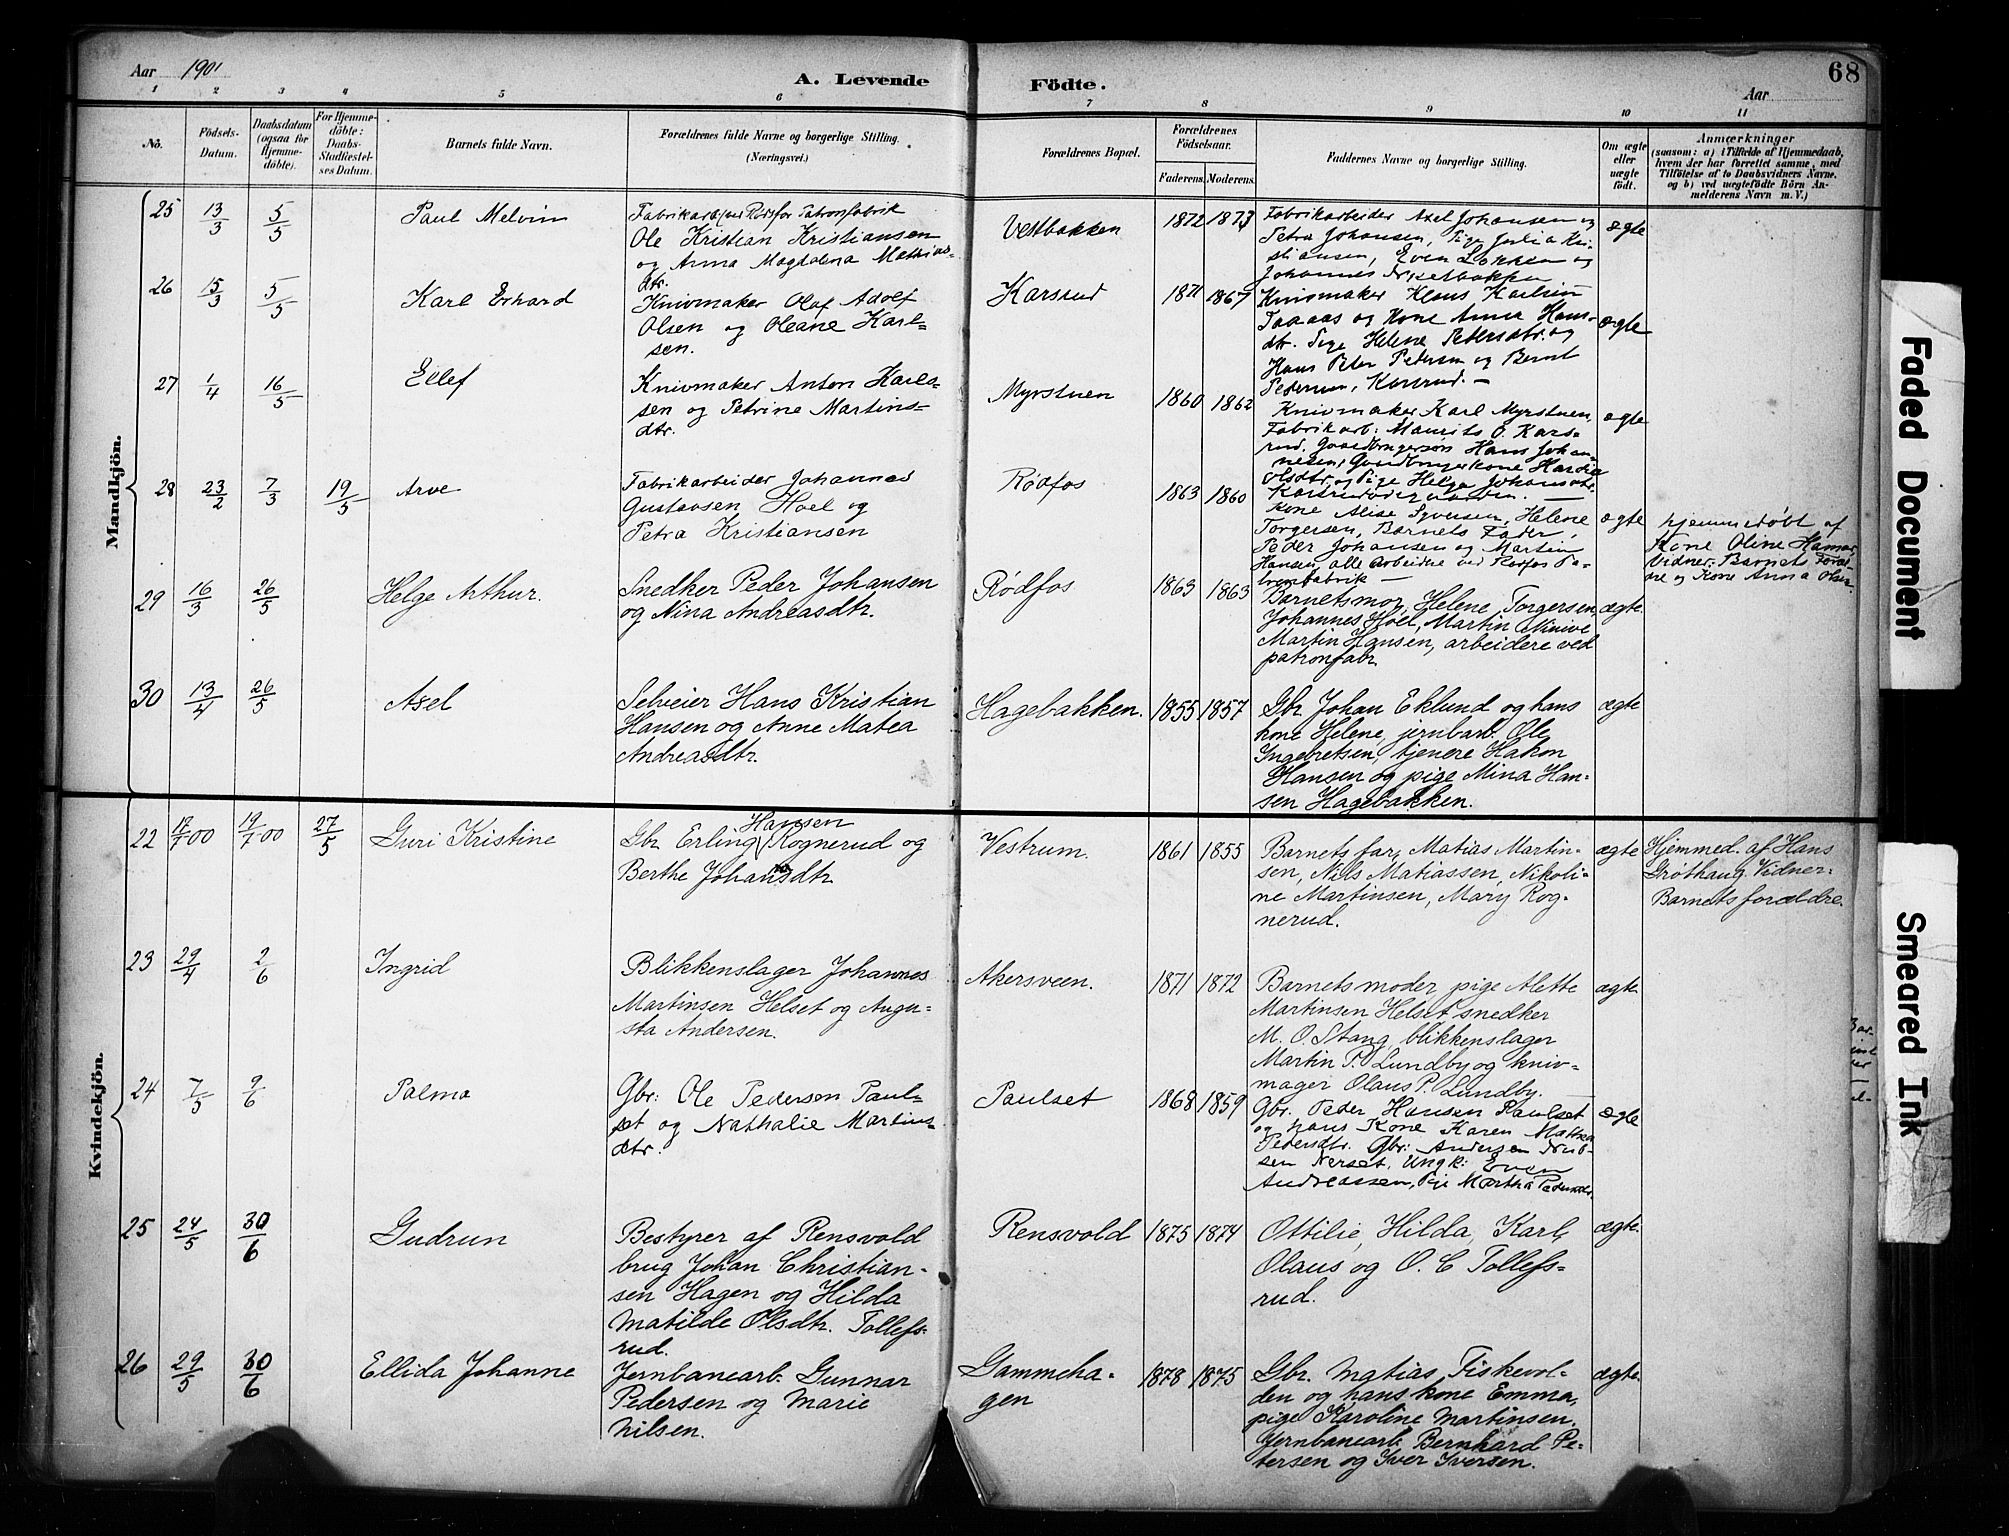 Aar 1901
A. Levende Födte.
Aar
68
1 2 3 4 5 6 7 8 9 10 11
No.
Födsels-
Datum.
Daabsdatum
(ogsaa for
Hjemme-
döbte).
For Hjemme-
döbte:
Daabs-
Stadfæstel-
ses Datum.
Barnets fulde Navn.
Forældrenes fulde Navne og borgerlige Stilling.
(Næringsvei.)
Forældrenes Bopæl.
Forældrenes
Födselsaar.
Faderens. Moderens.
Faddernes Navne og borgerlige Stilling.
Om ægte
eller
uægte
födt.
Anmærkninger
(saasom: a) i Tilfælde af Hjemmedaab,
hvem der har forrettet samme, med
Tilföielse af to Daabsvidners Navne,
og b) ved uægtefödte Börn An-
melderens Navn m. V.)
Mandkjön.
25 13/3 5/5 Paul Melvin
Ole Kristian Kristiansen
og Anna Magdalena Mathias-
dtr.
Vestbakken 1872 1873
Fabrikarbeider Axel Johansen og
Petra Johansen, Pige Julia Kri-
stiansen, Even Løkken og
Johannes
ægte
26 15/3 5/5 Karl Erhard
Knivmaker Olaf Adolf
Olsen og Oleane Karl-
sen.
Karsrud 1871 1867
Knivmaker Klaus Karlsen
og Kone Anna Hans-
dtr. Pige Helene Pedersdtr. og
Hans Peter Pedersen og Bernt
Pedersen, Karsrud. —
ægte
27 1/4 16/5 Ellef
Knivmaker Anton Karls-
sen og Petrine Martins-
dtr.
Myrstuen 1860 1862
Knivmaker Karl Myrstuen,
Fabrikarb: Maurits O. Kars-
rud, Gaardbrugersøn Hans Johan-
nesen, Gaardbrugerkone
Olsdtr. og Pige Helga Johansdtr.
ægte
28 23/2 7/3 19/5 Arve
Fabrikarbeider Johannes
Gustavsen Hoel og
Petra Kristiansen
Rødfos 1863 1860
Kone Alise Syversen, Helene
Torgersen, Barnets Fader,
Peder Johansen og Martin
Hansen, alle Arbeidere ved Rødfos Pa-
tronfabrik —
ægte
hjemmedøbt af
Kone Oline Hamar,
Vidner: Barnets Foræl-
dre og Kone Anna Olsen.
29 16/3 26/5 Helge Arthur.
Snedker Peder Johansen
og Nina Andreasdtr.
Rødfos 1863 1863
Barnets mor, Helene Torgersen,
Johannes Hoel, Martin Ninive
Martin Hansen, arbeidere ved
patronfabr.
ægte.
30 13/4 26/5 Axel
Selveier Hans Kristian
Hansen og Anne Matea
Andreasdtr.
Hagebakken. 1855 1857
Gbr. Johan Eklund og hans
kone Helene, jernbarb. Ole
Ingebretsen, tjenere Hakon
Hansen og pige Mina Han-
sen Hagebakken.
ægte
Kvindekjön.
22 17/7 00 19/7 00 27/5 Guri Kristine
Gbr. Erling Hansen Rognerud og
Berthe Johansdtr.
Vestrum. 1861 1855
Barnets far, Matias Martin-
sen, Nils Matiassen, Nikoli-
ne Martinsen, Mary Rog-
nerud.
ægte
Hjemmed. af Hans
Grøthaug. Vidner:
Barnets forældre.
23 29/4 2/6 Ingrid
Blikkenslager Johannes
Martinsen Helset og Augu-
sta Andersen.
Akersveen. 1871 1872
Barnets moder, pige Alette
Martinsen Helset, snedker
M. O. Stang, blikkenslager
Martin P. Lundby og kniv-
mager Olaus P. Lundby. —
ægte.
24 7/5 9/6 Palma
Gbr: Ole Pedersen Paul-
set og Nathalie Martins-
dtr.
Paulset 1868 1859
Gbr. Peder Hansen Paulset
og hans Kone Karen Mathea
Pedersdtr. Gbr: Andersen
Nerset, Ungk: Even
Andreassen, Pige Martha Pedersdtr.
ægte
25 24/5 30/6 Gudrun
Bestyrer af Rensvold
brug Johan Christian-
sen Hagen og Hilda
Matilde Olsdtr. Tollefs-
rud.
Rensvold 1875 1874
Ottilie, Hilda, Karl,
Olaus og O. C Tollefs-
rud.
ægte.
26 29/5 30/6 Ellida Johanne
Jernbanearb. Gunnar
Pedersen og Marie
Nilsen.
Gammeha-
gen
1878 1875
Gbr. Matias Fiskevol-
den og hans kone Emma,
pige Karoline Martinsen.
Jernbanearb. Bernhard Pe-
tersen og Iver Iversen.
ægte.
Faded Document
Smeared Ink